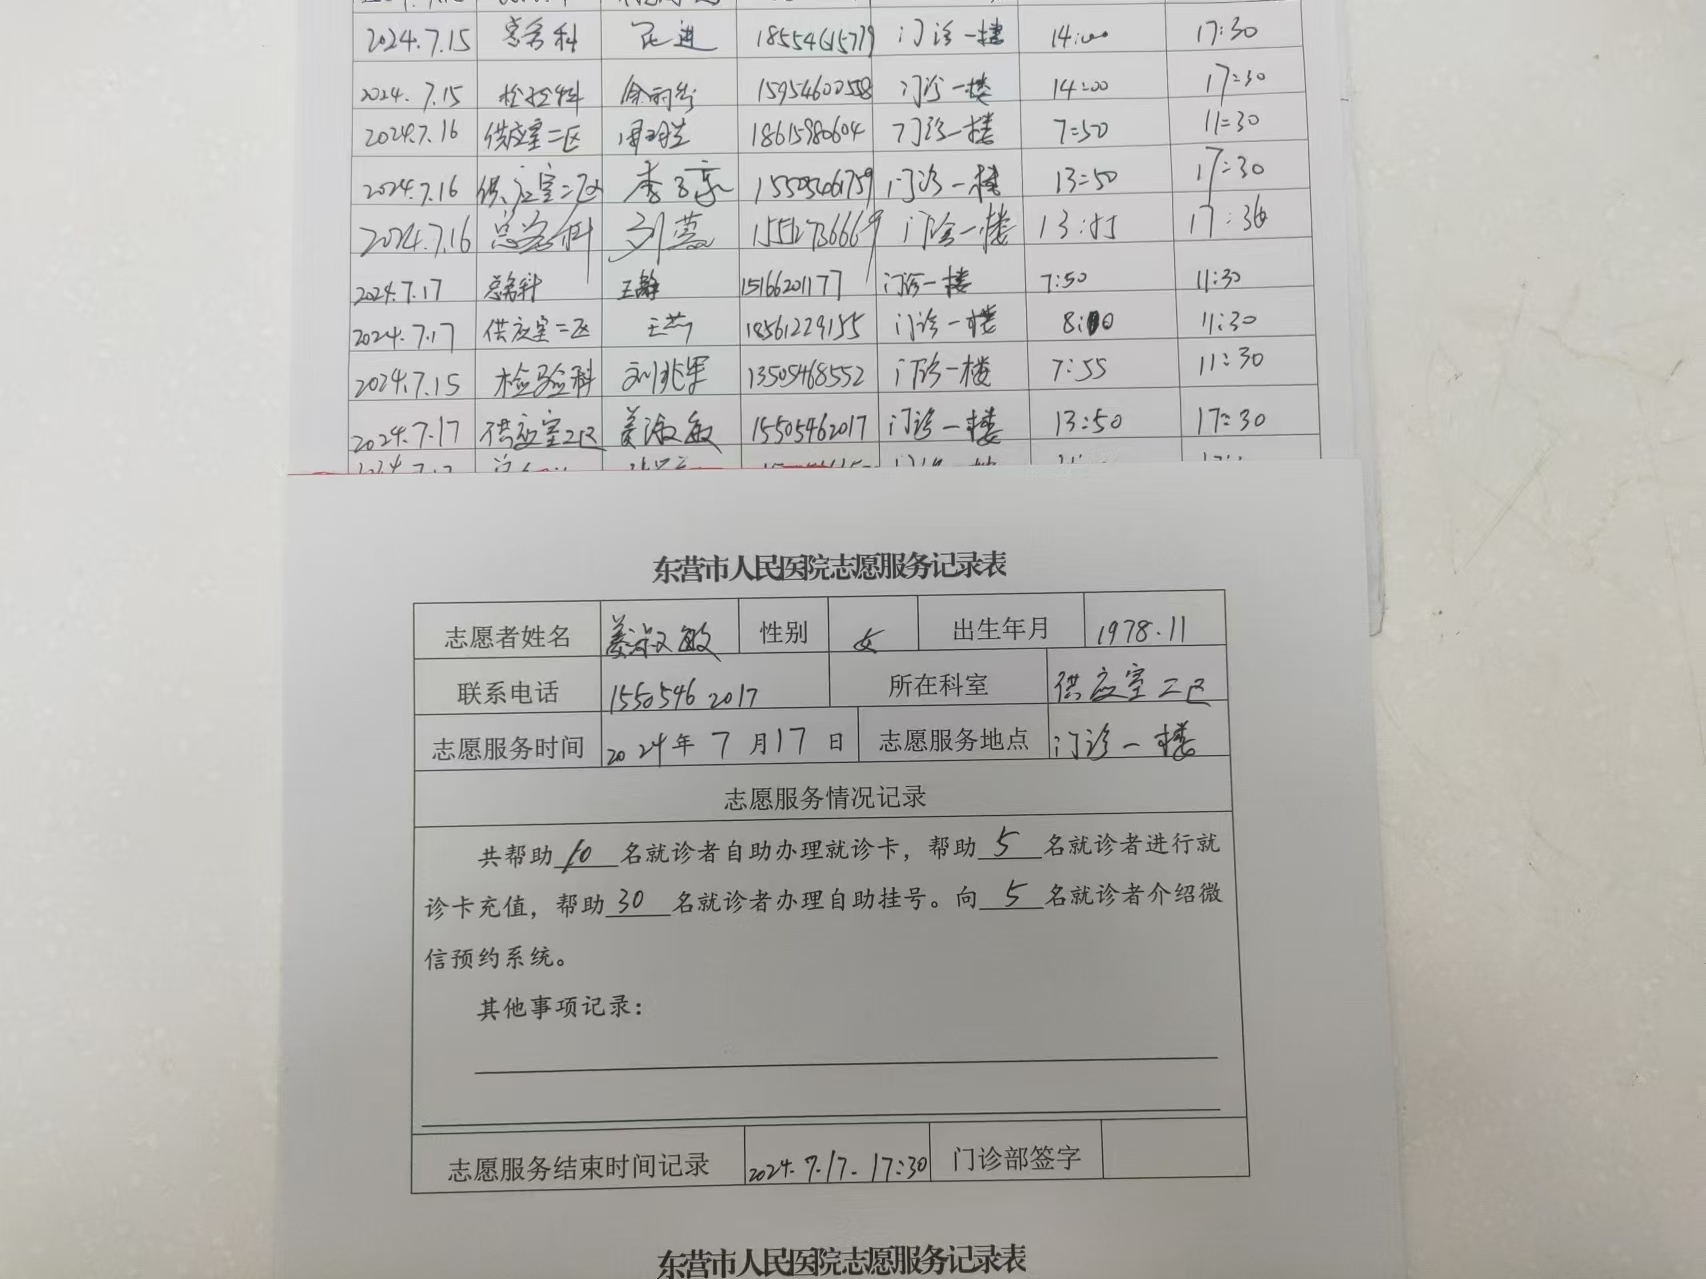 2024.7.15 总务科 门诊一楼 14:00 17:30
2024.7.15 检验科 15954602558 门诊一楼 14:00 17:30
2024.7.16 供应室二区 18615980604 门诊一楼 7:50 11:30
2024.7.16 供应室二区 门诊一楼 13:50 17:30
2024.7.16 总务科 刘燕 门诊一楼 17:30
2024.7.17 总务科 王静 15166201177 门诊一楼 7:50 11:30
2024.7.17 供应室二区 18561229155 门诊一楼 8:00 11:30
2024.7.15 检验科 刘兆军 13505468552 门诊一楼 7:55 11:30
2024.7.17 供应室二区 姜淑敏 15505462017 门诊一楼 13:50 17:30
东营市人民医院志愿服务记录表
志愿者姓名 姜淑敏 性别 女 出生年月 1978.11
联系电话 15505462017 所在科室 供应室二区
志愿服务时间 2024年7月17日 志愿服务地点 门诊一楼
志愿服务情况记录
共帮助10名就诊者自助办理就诊卡，帮助5名就诊者进行就
诊卡充值，帮助30名就诊者办理自助挂号。向5名就诊者介绍微
信预约系统。
其他事项记录：
志愿服务结束时间记录 2024.7.17. 17:30 门诊部签字
东营市人民医院志愿服务记录表